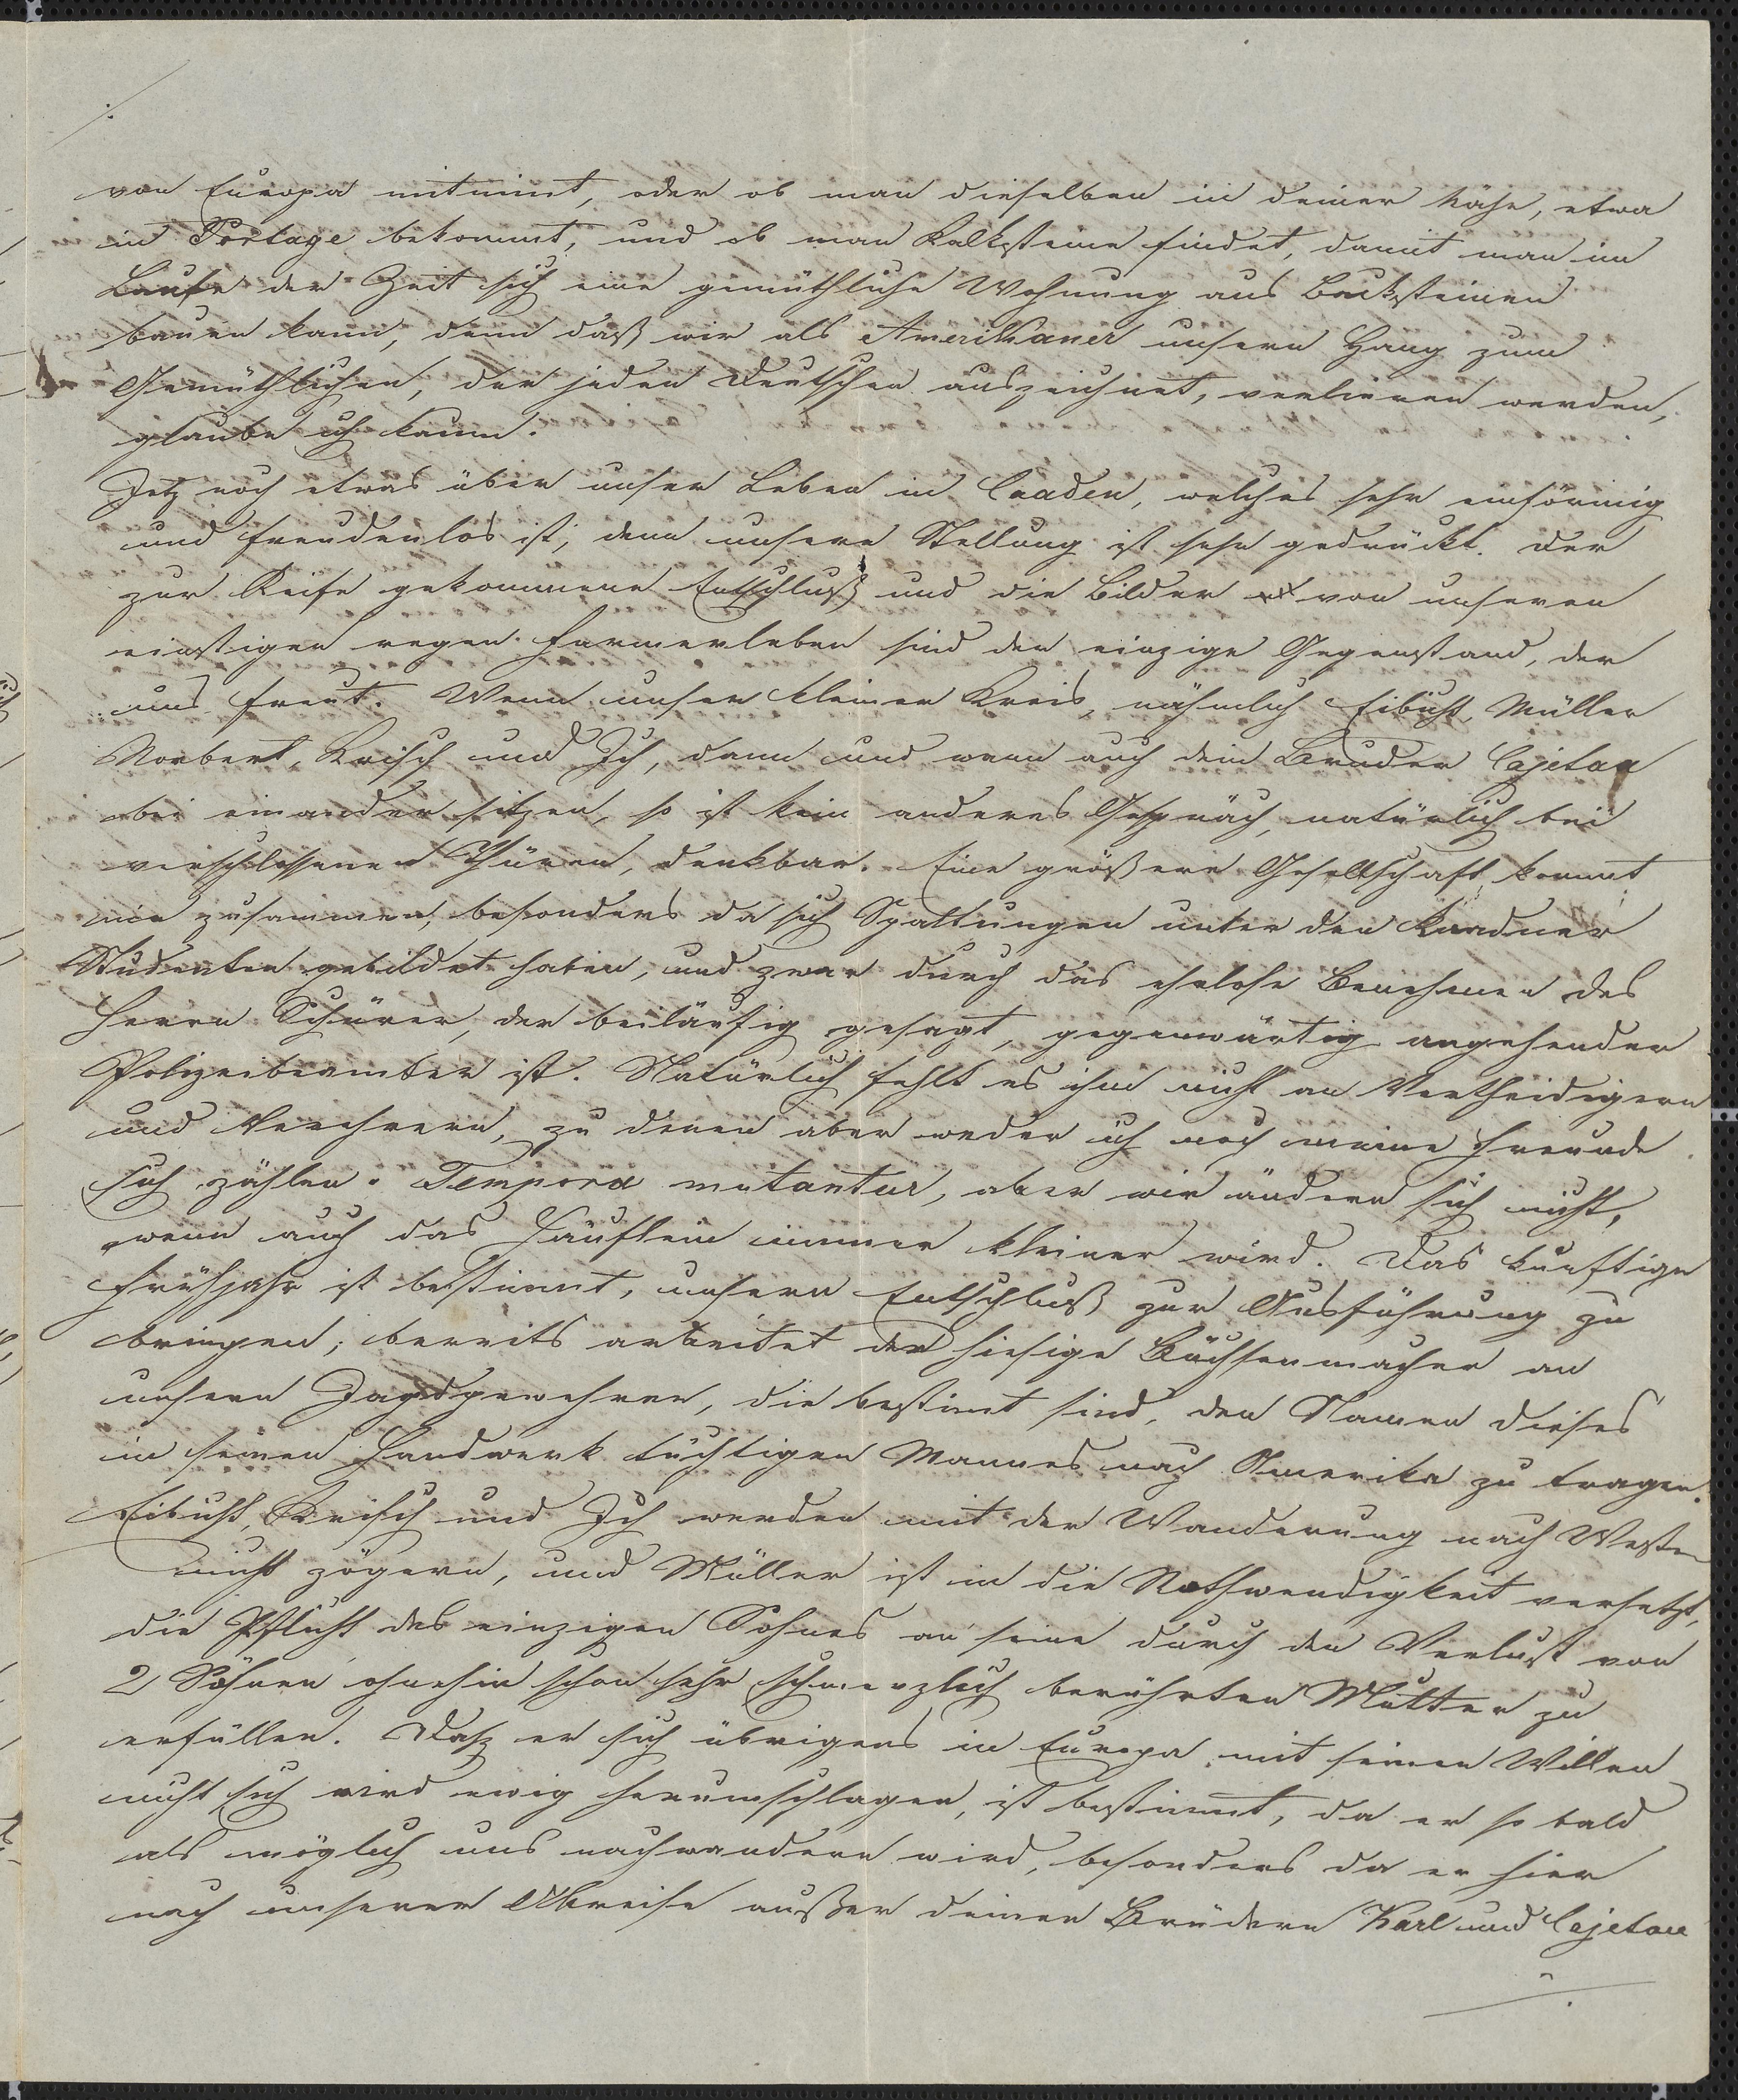 von Europa mitnimt, oder ob man dieselben in deiner Nähe, etwa
in Portage bekommt, und ob man Kalksteine findet, damit man im
Laufe der Zeit sich eine gemüthliche Wohnung aus Backsteinen
bauen kann, denn daß wir als Amerikaner unsern Hang zum
Gemüthlichen, der jeden Deutschen auszeichnet, verlieren werden,
glaube ich kaum.
Jetz noch etwas über unser Leben in Caaden, welches sehr einförmig
und freudenlos ist, denn unsere Stellung ist sehr gedrückt. Der
zur Reife gekommene Entschluß und die Bilder von unseren
einstigen regen Farmerleben sind der einzige Gegenstand, der
uns freut. Wenn unser kleiner Kreis, nähmlich Eibicht, Müller
Norbert, Krisch und Ich, dann und wann auch dein Bruder Cajetan
bei einander sitzen, so ist kein anderes Gespräch, natürlich bei
verschlossenen Thüren, denkbar. Eine größere Gesellschaft kommt
nie zusammen, besonders da sich Spaltungen unter den Kaadner
Studenten gebildet haben, und zwar durch das ehrlose Benehmen des
Herrn Schürer, der beiläufig gesagt, gegenwärtig angehender
Polizeibeamter ist. Natürlich fehlt es ihm nicht an Vertheidigern
und Verehrern, zu denen aber weder ich noch meine Freunde
sich zählen. Tempora mutantur, aber wir ändern sich nicht,
wenn auch das Häuflein immer kleiner wird. Das künftige
Frühjahr ist bestimmt, unsern Entschluß zur Ausführung zu
bringen; bereits arbeitet der hiesige Büchsenmacher an
unsern Jagdgewehren, die bestimt sind, den Namen dieses
in seinen Handwerk tüchtigen Mannes nach Amerika zu tragen.
Eibicht, Krisch und Ich werden mit der Wanderung nach Westen
nicht zögern, und Müller ist in die Nothwendigkeit versetzt,
die Pflicht des einzigen Sohnes an seine durch den Verlust von
2 Söhnen ohnehin schon sehr schmerzlich berührten Mutter zu
erfüllen. Daß er sich übrigens in Europa mit seinen Willen
nicht sich wird ewig herumschlagen, ist bestimmt, da er so bald
als möglich uns nachwandern wird, besonders da er hier
nach unserer Abreise außer deinen Brüdern Karl und Cajetan